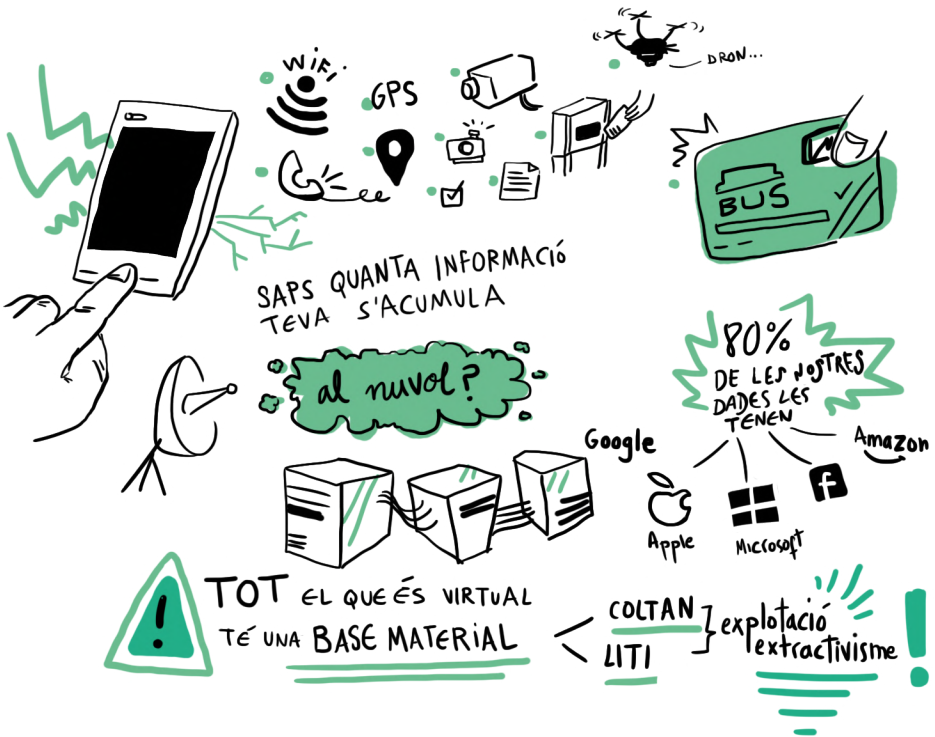 WiFi
GPS
DRON...
BUS
SAPS QUANTA INFORMACIÓ
TEVA S'ACUMULA
al nuvol?
80%
DE LES NOSTRES
DADES LES
TENEN
Google
Apple
Microsoft
f
Amazon
!
TOT EL QUE ÉS VIRTUAL
TÉ UNA BASE MATERIAL
COLTAN
LITI
explotació
extractivisme
!